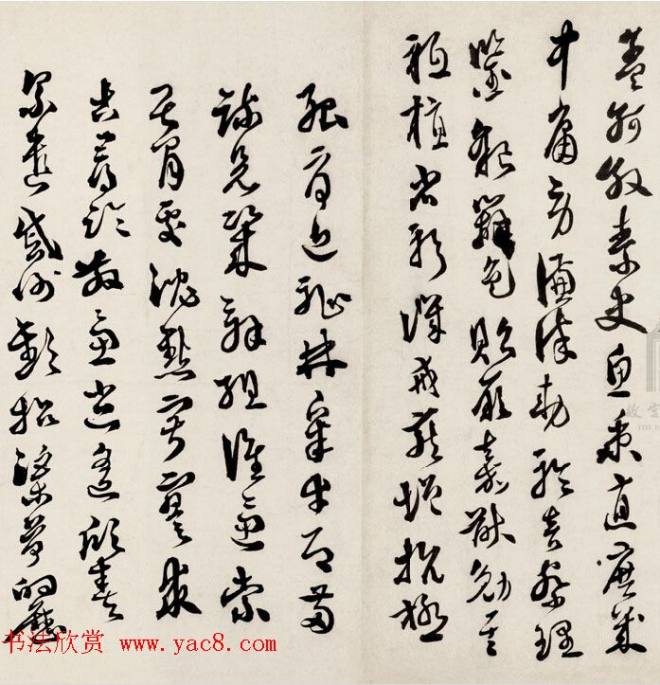 孟軻敦素史魚秉直庶幾
中庸勞謙謹敕聆音察理
鑒貌辨色貽厥嘉猷勉其
祗植省躬譏誡寵增抗極
殆辱近恥林皋幸即兩
疏見機解組誰逼索
居閑處沈默寂寥求
古尋論散慮逍遙欣奏
累遣慼謝歡招渠荷的歷
书法欣赏 www.yac8.com